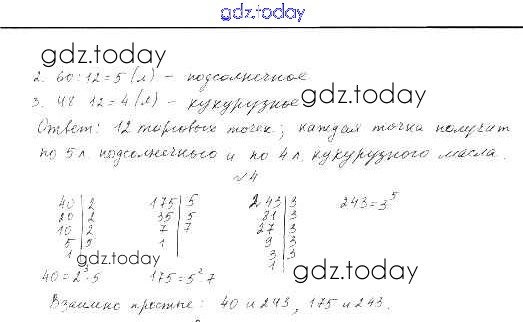 gdz.today
gdz.today
2. 60:12=5 (л) - подсолнечное
3. 48 12=4 (л) - кукурузное
gdz.today
Ответ: 12 торговых точек; каждая точка получит
по 5 л. подсолнечного и по 4 л. кукурузного масла.
№4
40|2 175|5 243|3 243=3⁵
20|2 35|5 81|3
10|2 7|7 27|3
5|5 1 9|3
1 3|3
gdz.today
1
40=2³·5 175=5²·7
gdz.today
Взаимно простые: 40 и 243, 175 и 243.